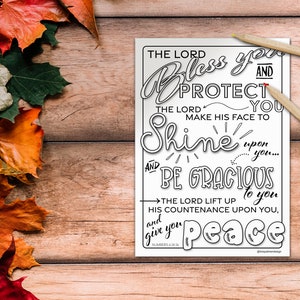 THE LORD
Bless you
AND
PROTECT
YOU
THE LORD
MAKE HIS FACE TO
Shine
upon
you...
AND
BE GRACIOUS
to you
THE LORD LIFT UP
HIS COUNTENANCE UPON YOU,
and
give you
peace